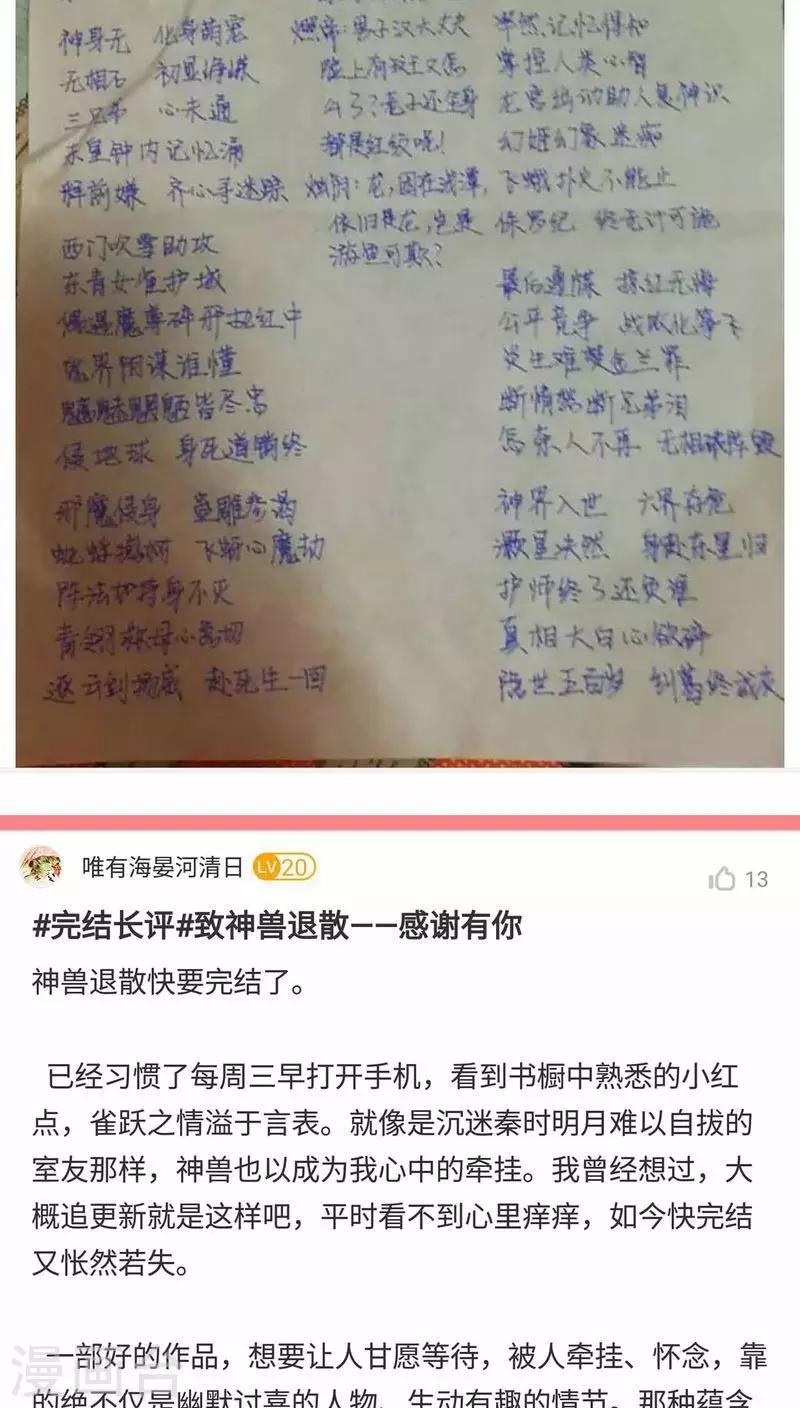 神身无 化身萌宠
无相石 初显峥嵘
三兄弟 心未通
东皇钟内记忆涌
释前嫌 齐心寻迷踪
西门吹雪助攻
东青女皇护城
偶遇魔尊碎邢劫红中
鬼界阴谋谁懂
魑魅魍魉皆尽害
侵地球 身死道销终
邪魔侵身
蚍蜉撼树 飞蛾心魔劫
阵法加持身不灭
青翎救母心急切
逐云到扬威 赴死生一回
燃帝:男子汉大丈夫
脸上有纹又怎
么了?老子还全身
都是红纹呢!
烛阴:龙,困在浅滩,
依旧是龙,岂是
游鱼可欺?
毕然记忆得知
掌控人类心智
龙宫出动助人复神识
幻姬幻象迷痴
飞蛾扑火不能止
侏罗纪 终无计可施
最后遭煤 掠红无悔
公平竞争
炎生难焚金兰罪
断情怒断兄弟泪
怎奈人不再 无相破阵毁
神界入世 六界存危
护师终了还负谁
真相大白心欲碎
隐世五百岁 纠葛终成灰
唯有海晏河清日 LV20
13
#完结长评#致神兽退散——感谢有你
神兽退散快要完结了。
已经习惯了每周三早打开手机，看到书橱中熟悉的小红
点，雀跃之情溢于言表。就像是沉迷秦时明月难以自拔的
室友那样，神兽也以成为我心中的牵挂。我曾经想过，大
概追更新就是这样吧，平时看不到心里痒痒，如今快完结
又怅然若失。
一部好的作品，想要让人甘愿等待，被人牵挂、怀念，靠
的绝不仅是幽默讨喜的人物、生动有趣的情节。那种蕴含
漫画台